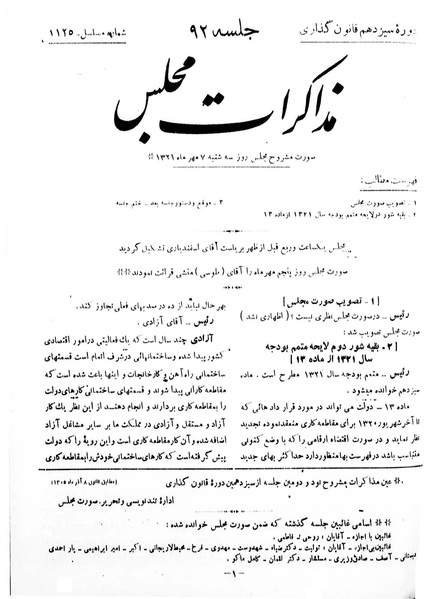 دورهٔ سیزدهم قانون گذاری
جلسه ۹۲
شماره مسلسل - ۱۱۲۵
مذاکرات مجلس
صورت مشروح مجلس روز سه شنبه ۷ مهر ماه ۱۳۲۱
فهرست مطالب :
۱ - تصویب صورت مجلس
۲ - بقیه شور در لایحه متمم بودجه سال ۱۳۲۱ از ماده ۱۳
۳ - موقع و دستور جلسه بعد - ختم جلسه
مجلس یکساعت و ربع قبل از ظهر بریاست آقای اسفندیاری تشکیل گردید
صورت مجلس روز پنجم مهر ماه را آقای (طوسی) منشی قرائت نمودند
[ ۱ - تصویب صورت مجلس ]
رئیس - در صورت مجلس نظری نیست ؟ ( اظهاری نشد )
صورت مجلس تصویب شد :
[ ۲ - بقیه شور دوم لایحه متمم بودجه
سال ۱۳۲۱ از ماده ۱۳ ]
رئیس - متمم بودجه سال ۱۳۲۱ مطرح است . ماده
سیزدهم خوانده میشود .
ماده ۱۳ - دولت می تواند در مورد قرار داد هائی که
تا آخر شهریور ۱۳۲۰ برای مقاطعه کاری منعقد نموده تجدید
نظر نماید و در صورت اقتضاء ارقامی را که با وضع کنونی
متناسب باشد در فهرست بها منظور دارد حداکثر بهای جدید
بهر حال نباید از ده درصد بهای فعلی تجاوز کند .
رئیس - آقای آزادی .
آزادی چند سال است که یک فعالیتی در امور اقتصادی
کشور پیدا شده و ساختمانهائی در شرف اتمام است قسمتهای
ساختمانی راه آهن و کارخانجات و اینها باعث شده است که
مقاطعه کارانی پیدا شوند و قسمتهای ساختمانی کارهای دولت
را بمقاطعه کاری بردارند و انجام دهند از این نظر یك کار
آزاد و مستقل و آزادی در مملکت ما بر سایر مشاغل آزاد
اضافه شده و آن کار مقاطعه کاری است و این رویهٔ را که دولت
پیش گرفته است که کارهای ساختمانی خودش را بمقاطعه کاری
عین مذاکرات مشروح نود و دومین جلسه از سیزدهمین دوره قانون گذاری
(مطابق قانون ۸ آذر ماه ۱۳۰۵)
اداره تندنویسی و تحریر صورت مجلس
اسامی غائبین جلسه گذشته که ضمن صورت مجلس خوانده شده :
غائبین با اجازه - آقایان : روحی - فاطمی .
غائبین بی اجازه - آقایان : تولیت - دکتر ضیاء - شهدوست - مهدوی - فرخ - صحت‌الاریجانی - اکبر - امیر ابراهیمی - یار احمدی
آصف - صادق وزیری - مستشار - دکتر لقمان - کامل ماکو .
- ۱ -